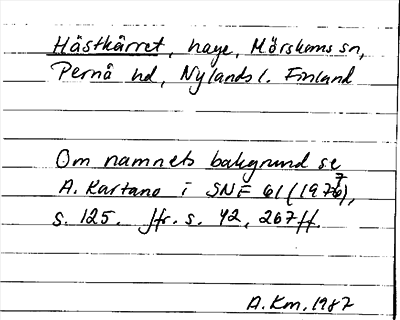 Hästkärret, hage, Mörskoms sn,
Pernå hd, Nylands l. Finland
Om namnets bakgrund se
A. Kartano i SNF 61 (1977),
s. 125. Jfr. s. 42, 267 ff.
A.Km. 1987